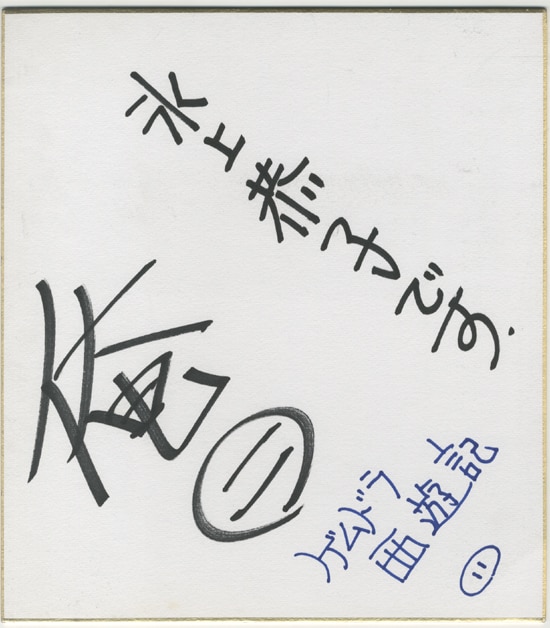 氷上恭子です.
俺
ゲムドラ
西遊記